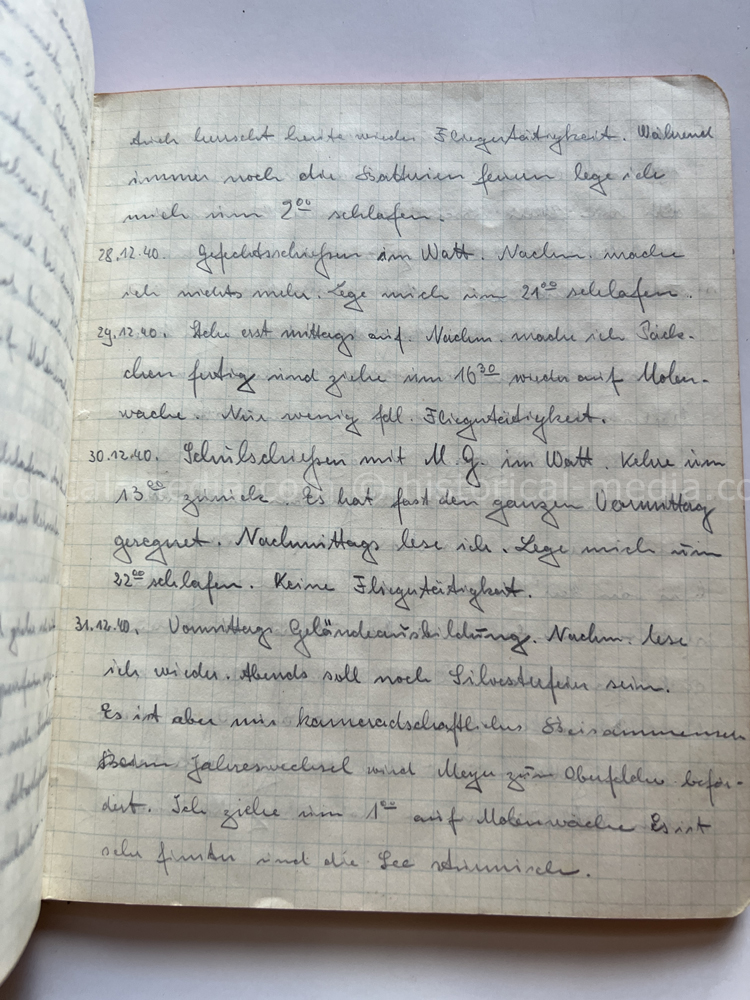 Auch herrscht heute wieder Fliegertätigkeit. Während
immer noch die Batterien feuern lege ich
mich um 2⁰⁰ schlafen.
28.12.40. Gefechtsschießen im Watt. Nachm. mache
ich nichts mehr. Lege mich um 21⁰⁰ schlafen.
29.12.40. Stehe erst mittags auf. Nachm. mache ich Päck-
chen fertig und ziehe um 16³⁰ wieder auf Molen-
wache. Nur wenig fdl. Fliegertätigkeit.
30.12.40. Schulschießen mit M.G. im Watt. Kehre um
13⁰⁰ zurück. Es hat fast den ganzen Vormittag
geregnet. Nachmittags lese ich. Lege mich um
22⁰⁰ schlafen. Keine Fliegertätigkeit.
31.12.40. Vormittag Geländeausbildung. Nachm. lese
ich wieder. Abends soll noch Silvesterfeier sein.
Es ist aber nur kameradschaftliches Beisammensein
Beim Jahreswechsel wird Meyer zum Oberfeldw. beför-
dert. Ich ziehe um 1⁰⁰ auf Molenwache Es ist
sehr finster und die See stürmisch.
© historical-media.com